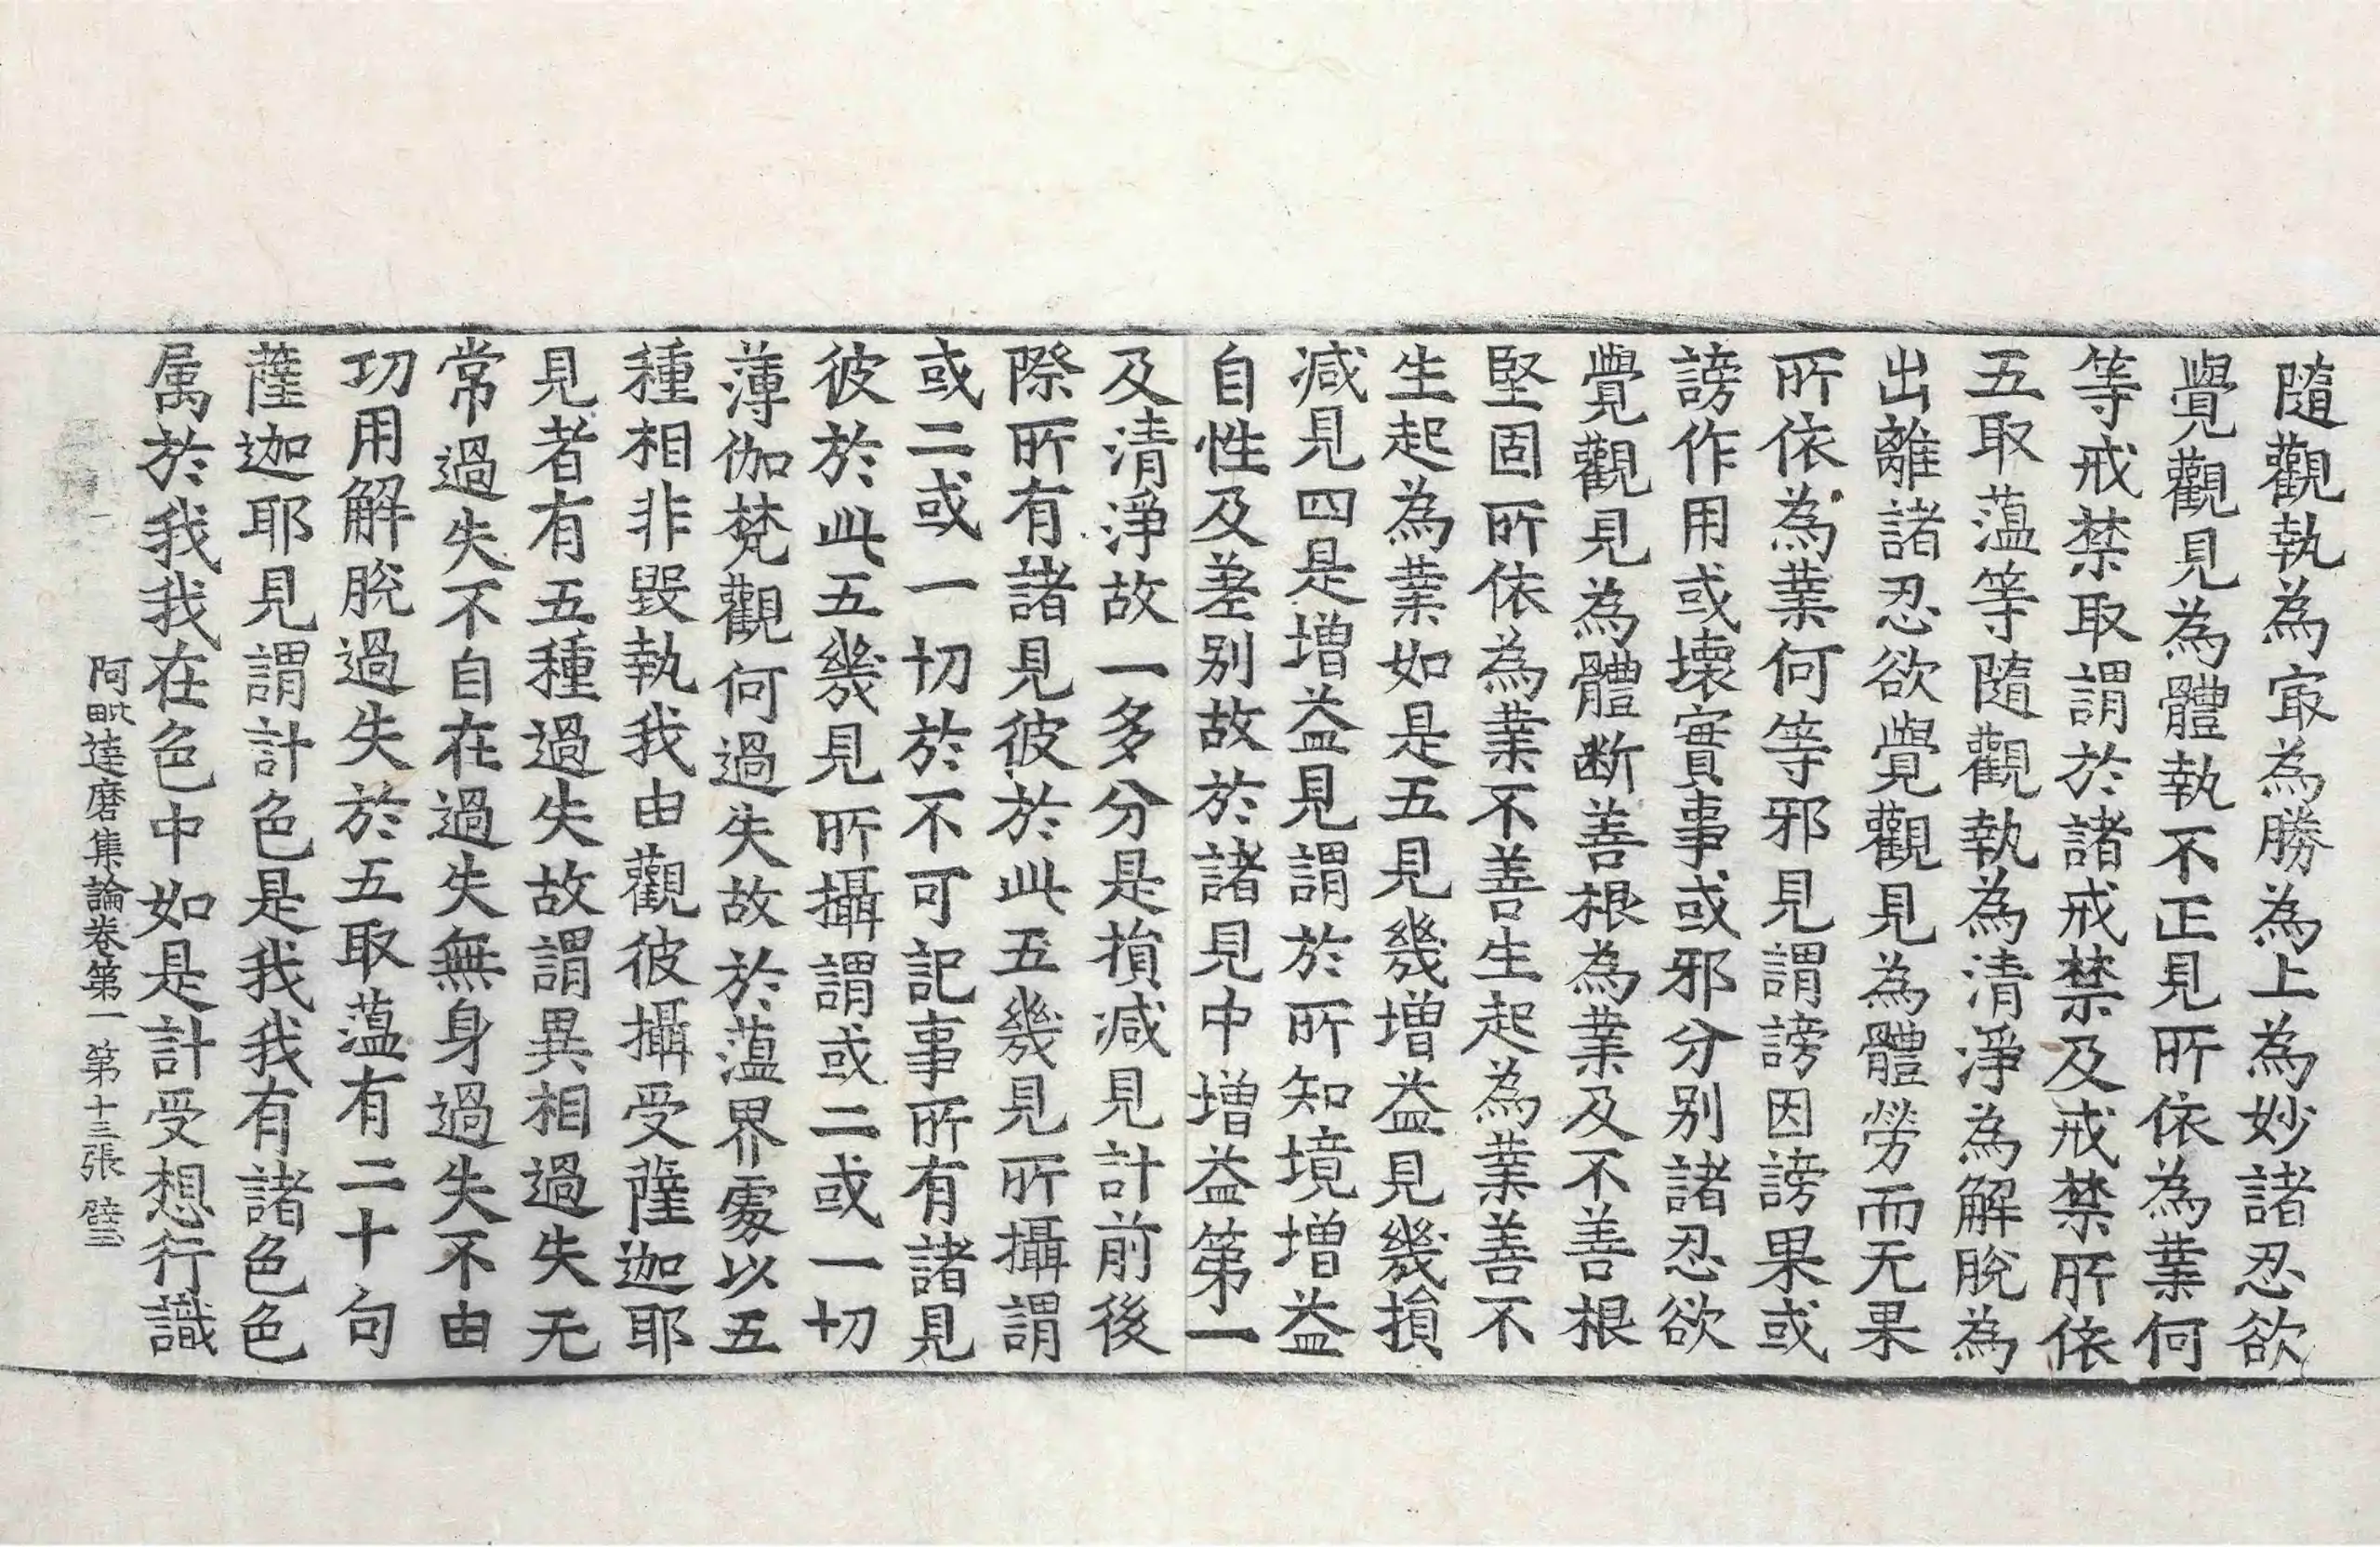 隨觀執為㝡為勝為上為妙諸忍欲
覺觀見為體執不正見所依為業何
等戒禁取謂於諸戒禁及戒禁所依
五取蘊等隨觀執為清淨為解脫為
出離諸忍欲覺觀見為體勞而无果
所依為業何等邪見謂謗因謗果或
謗作用或壞實事或邪分別諸忍欲
覺觀見為體断善根為業及不善根
堅固所依為業不善生起為業善不
生起為業如是五見幾增益見幾損
減見四是增益見謂於所知境增益
自性及差別故於諸見中增益第一
及清淨故一多分是損減見計前後
際所有諸見彼於此五幾見所攝謂
或二或一切於不可記事所有諸見
彼於此五幾見所攝謂或二或一切
薄伽梵觀何過失故於蘊界處以五
種相非毀執我由觀彼攝受薩迦耶
見者有五種過失故謂異相過失无
常過失不自在過失無身過失不由
功用解脫過失於五取蘊有二十句
薩迦耶見謂計色是我我有諸色色
属於我我在色中如是計受想行識
阿毗達磨集論卷第一 第十三張 璧三